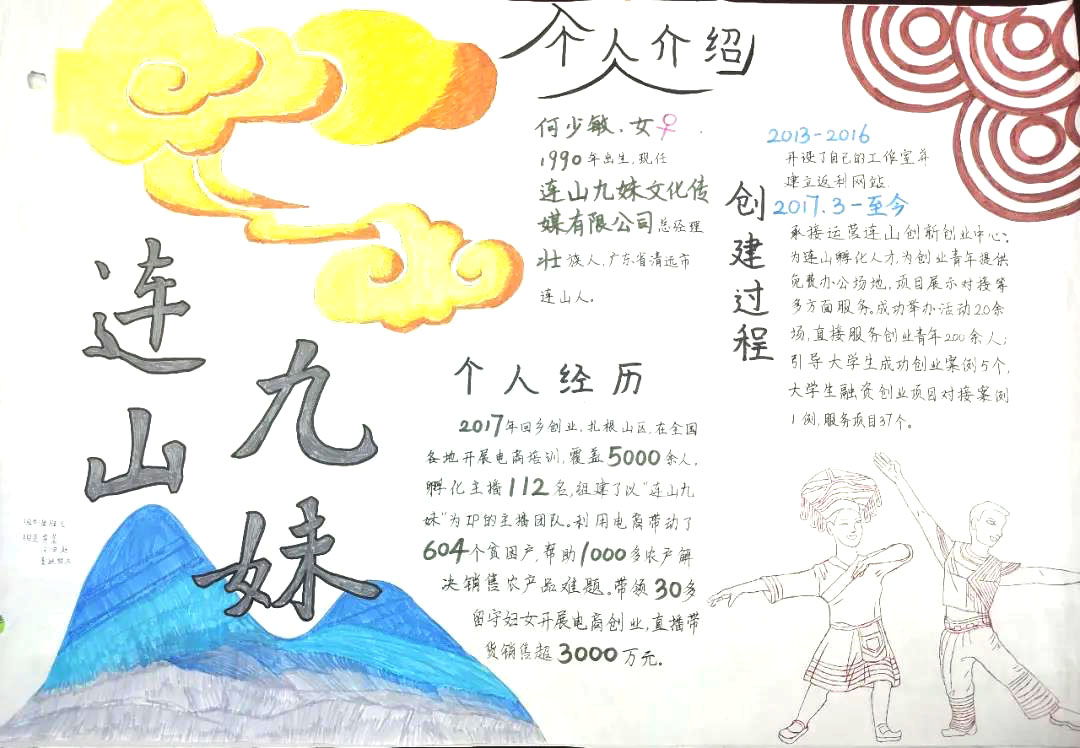 连山
九妹
个人介绍
何少敏、女♀
1990年出生,现任
连山九妹文化传
媒有限公司总经理
壮族人,广东省清远市
连山人。
个人经历
2017年回乡创业,扎根山区,在全国
各地开展电商培训,覆盖5000余人,
孵化主播112名,组建了以“连山九
妹”为IP的主播团队。利用电商带动了
604个贫困户,帮助1000多农户解
决销售农产品难题。带领30多
留守妇女开展电商创业,直播带
货销售超3000万元.
创建过程
2013-2016
开设了自己的工作室并
建立返利网站.
2017.3-至今
承接运营连山创新创业中心;
为连山孵化人才,为创业青年提供
免费办公场地,项目展示对接等
多方面服务。成功举办活动20余
场,直接服务创业青年200余人;
引导大学生成功创业案例5个,
大学生融资创业项目对接案例
1例,服务项目37个。